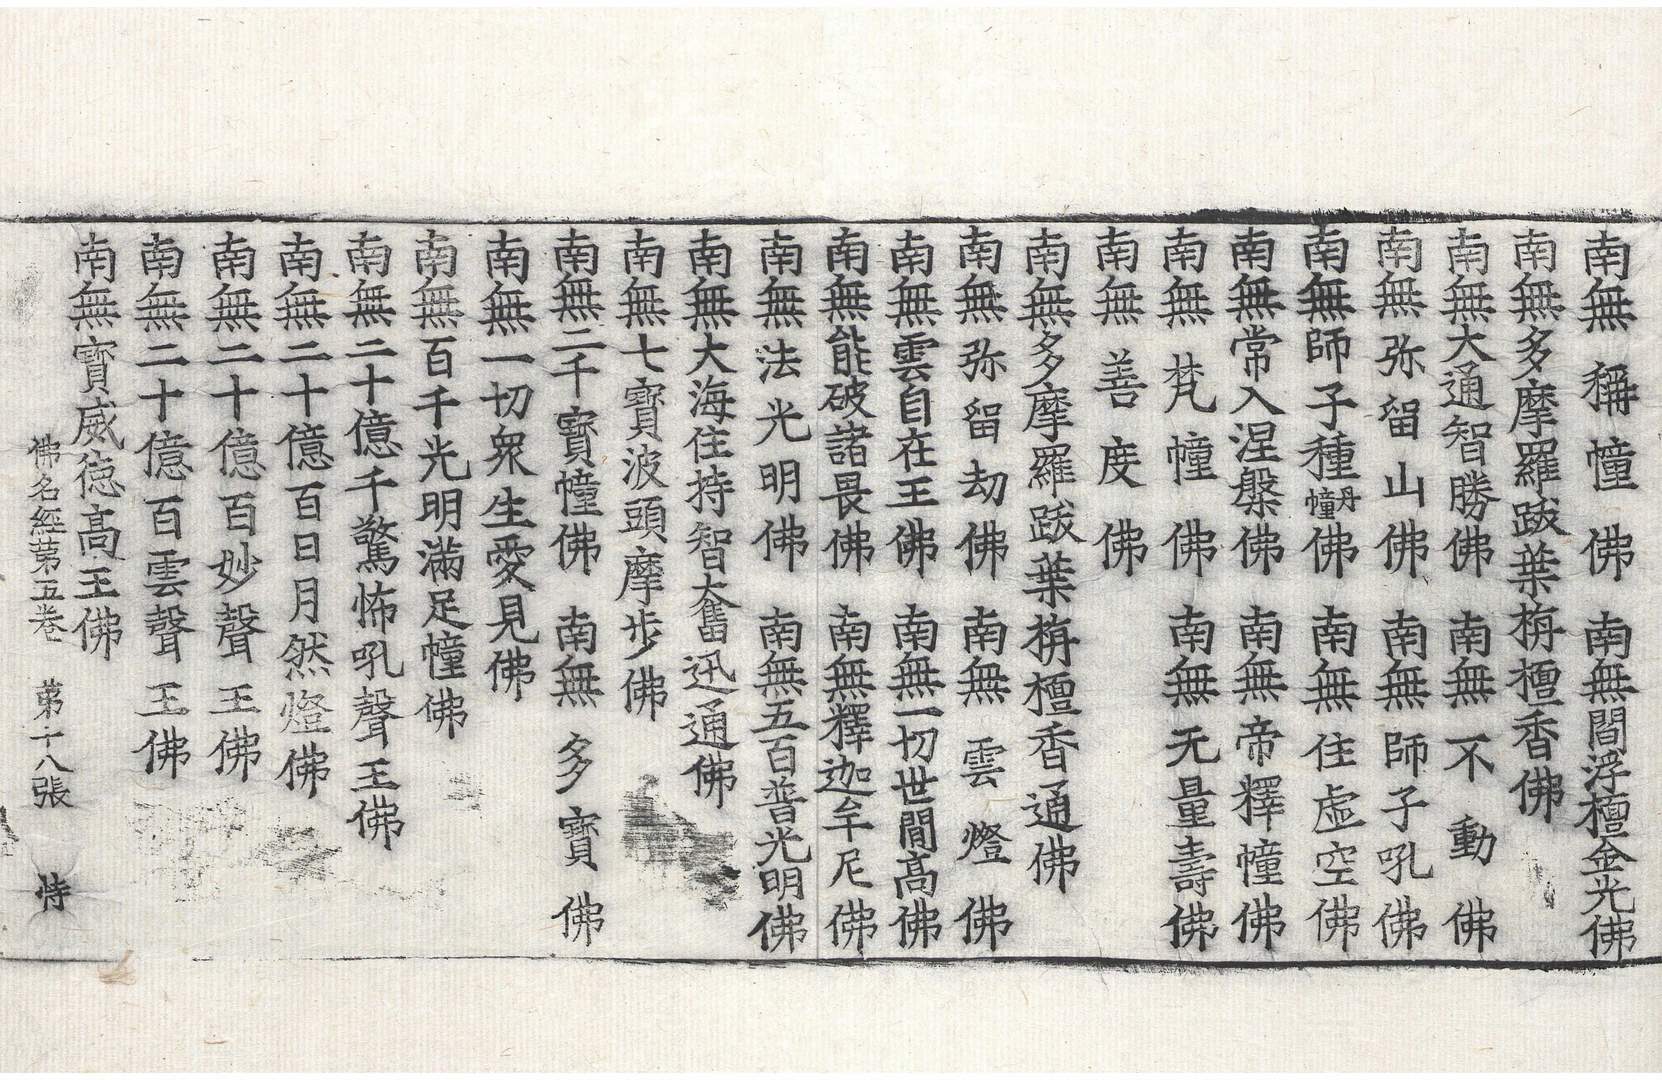 南無稱幢佛　南無閻浮檀金光佛
南無多摩羅跋葉栴檀香佛
南無大通智勝佛　南無不動佛
南無弥留山佛　南無師子吼佛
南無師子種丹幢佛　南無住虛空佛
南無常入涅槃佛　南無帝釋幢佛
南無梵幢佛　南無无量壽佛
南無善度佛
南無多摩羅跋葉栴檀香通佛
南無弥留劫佛　南無雲燈佛
南無雲自在王佛　南無一切世間高佛
南無能破諸畏佛　南無釋迦牟尼佛
南無法光明佛　南無五百普光明佛
南無大海住持智大奮迅通佛
南無七寶波頭摩步佛
南無二千寶幢佛　南無多寶佛
南無一切衆生愛見佛
南無百千光明滿足幢佛
南無二十億千驚怖吼聲王佛
南無二十億百日月然燈佛
南無二十億百妙聲王佛
南無二十億百雲聲王佛
南無寶威德高王佛
佛名經第五卷　第十八張　恃